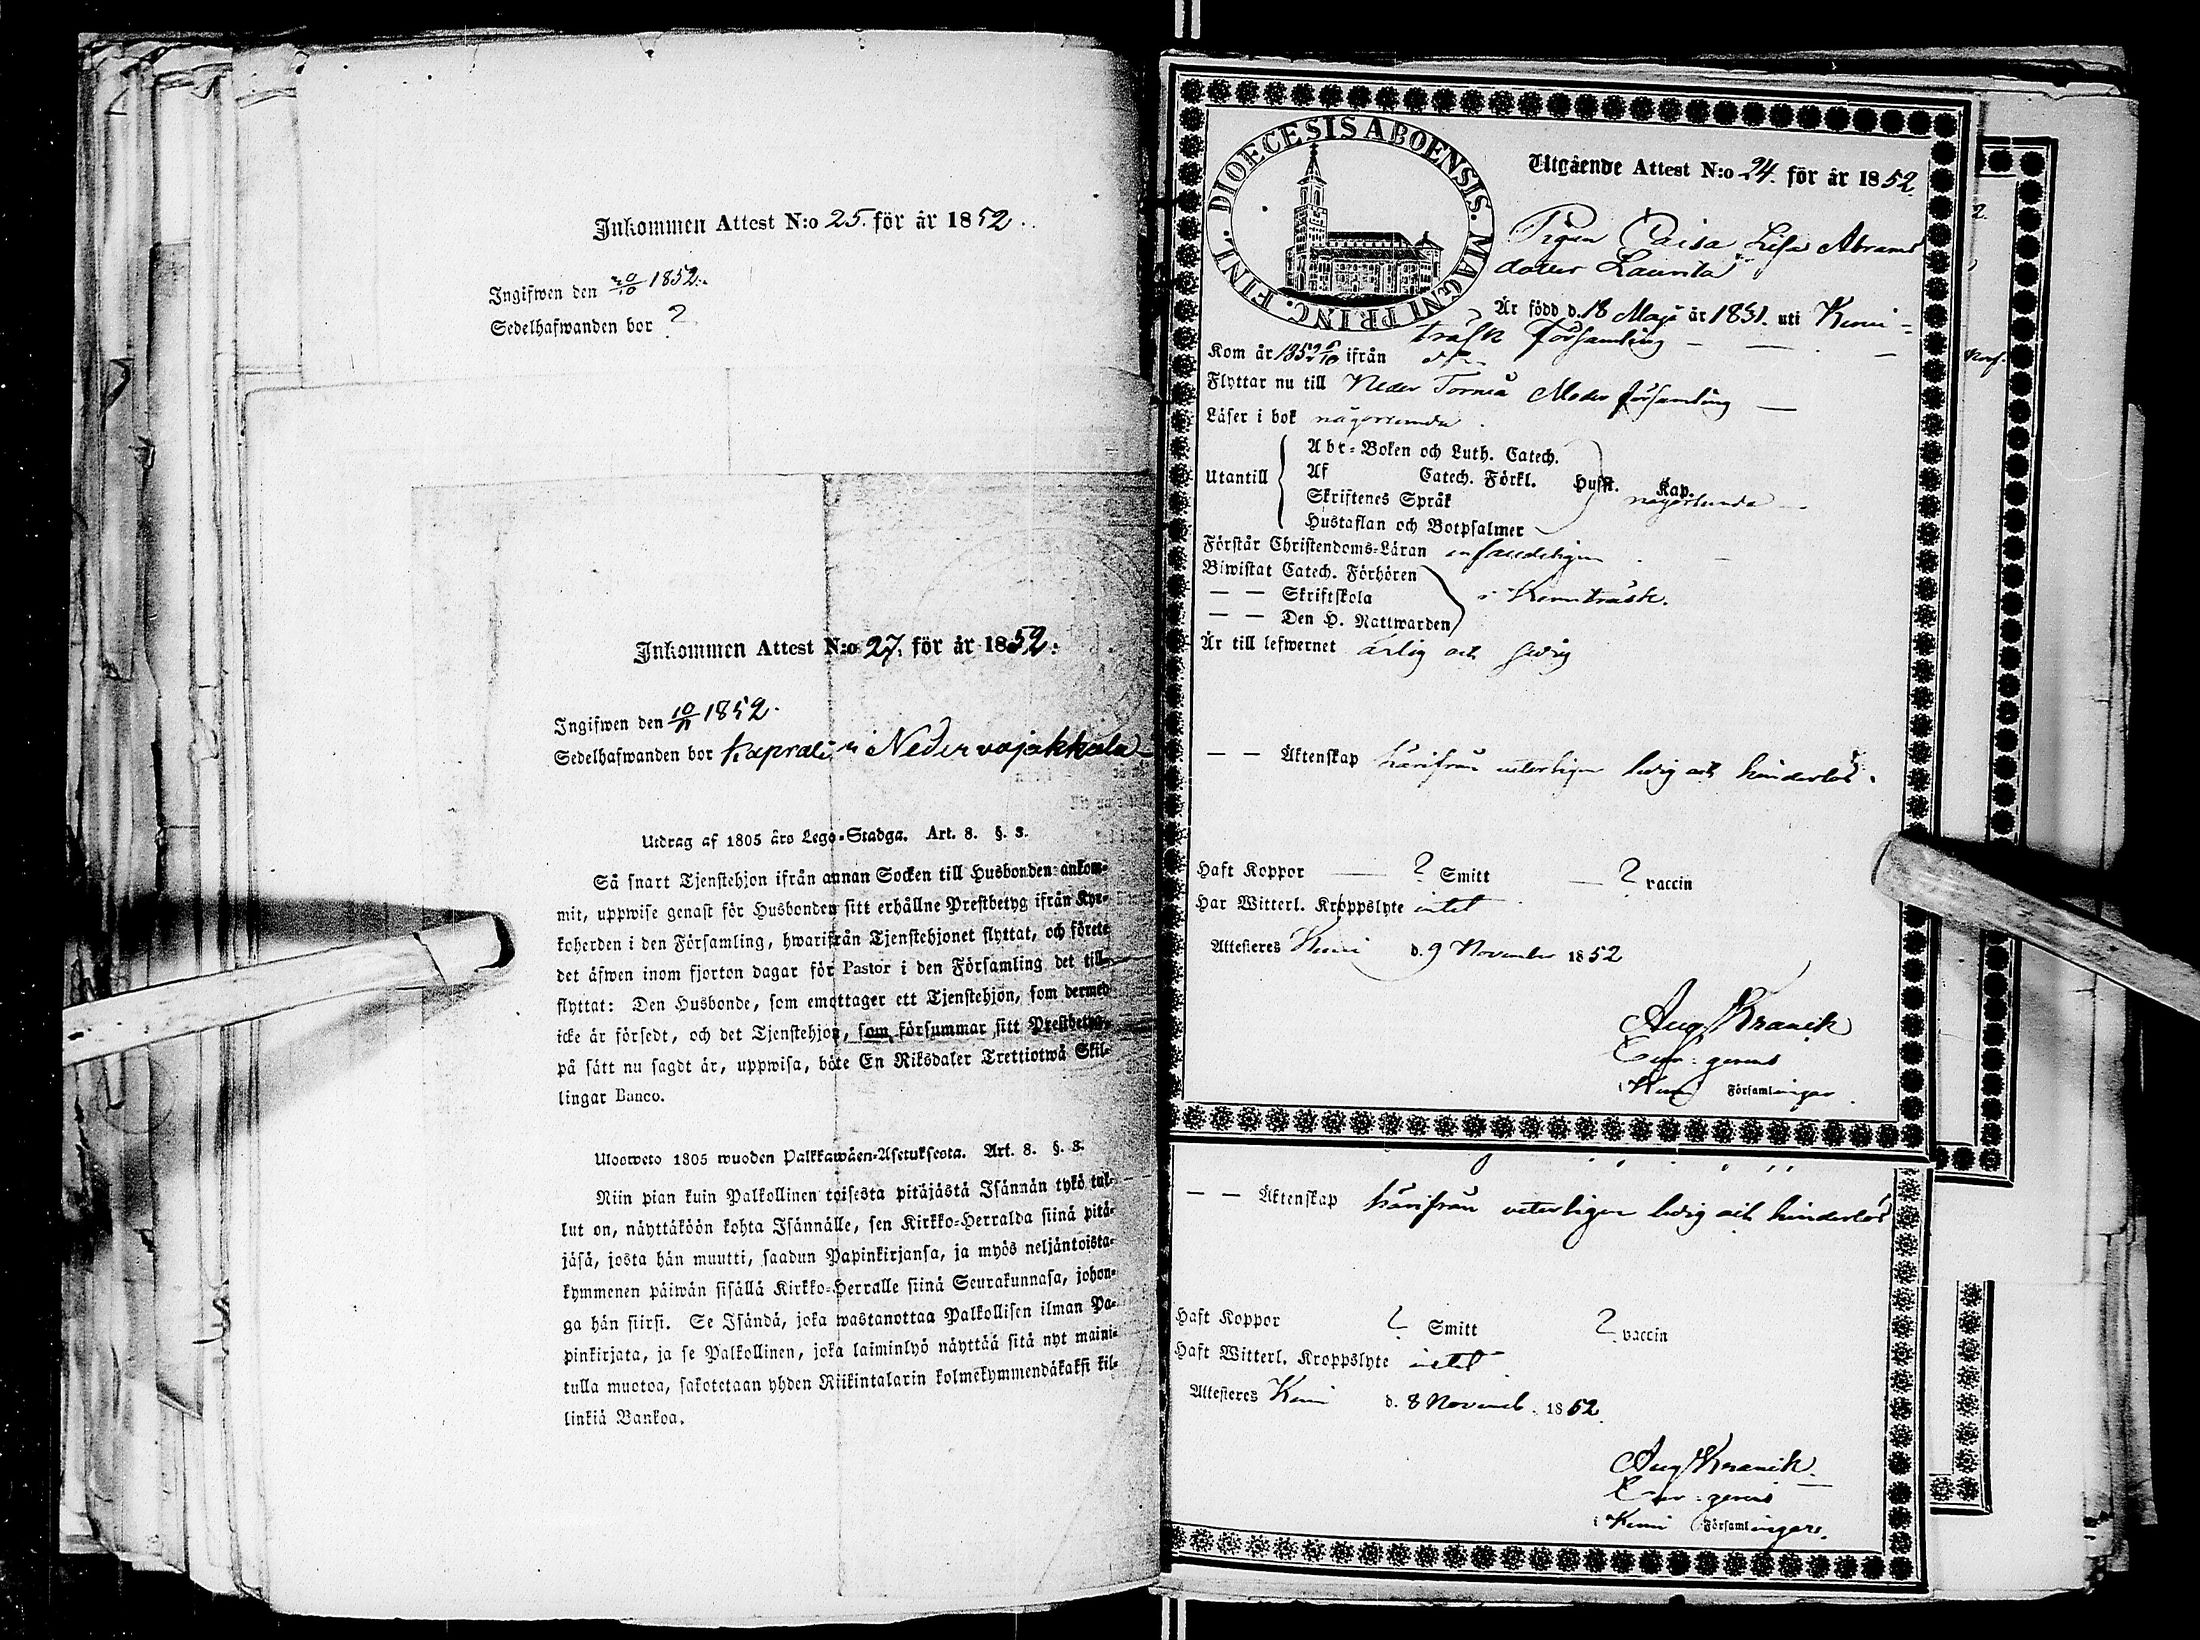 Inkommen Attest N:o 25. för år 1852.
Ingifwen den 20/10 1852.
Sedelhafwanden bor ?
Inkommen Attest N:o 27. för år 1852.
Ingifwen den 10/11 1852.
Sedelhafwanden bor i Neder vojakkala
Utdrag af 1805 års Lego-Stadga. Art. 8. §. 3.
Så snart Tjenstehjon ifrån annan Socken till Husbonden ankom-
mit, uppwise genast för Husbonden sitt erhållne Prestbetyg ifrån Kyr-
koherden i den Församling, hwarifrån Tjenstehjonet flyttat, och förete
det äfwen inom fjorton dagar för Pastor i den Församling det till-
flyttat: Den Husbonde, som emottager ett Tjenstehjon, som dermed
icke är försedt, och det Tjenstehjon, som försummar sitt Prestbetyg,
på sätt nu sagdt är, uppwisa, böte En Riksdaler Trettiotwå Skil-
lingar Banco.
Ulosweto 1805 wuoden Palkkawäen-Asetuksesta. Art. 8. §. 3.
Niin pian kuin Palkollinen toisesta pitäjästä Isännän tykö tul-
lut on, näyttäköön kohta Isännälle, sen Kirkko-Herralda siinä pitä-
jäsä, josta hän muutti, saadun Papinkirjansa, ja myös neljäntoista-
kymmenen päiwän sisällä Kirkko-Herralle siinä Seurakunnasa, johon-
ga hän siirsi. Se Isändä, joka wastanottaa Palkollisen ilman Pa-
pinkirjata, ja se Palkollinen, joka laiminlyö näyttää sitä nyt maini-
tulla muotoa, sakotetaan yhden Riikintalarin kolmekymmendäkaksi kil-
linkiä Bankoa.
FINL. DIOECESIS ABOENSIS. MAGNI PRINC.
Utgående Attest N:o 24. för år 1852.
Pigan Caisa Lisa Abrams
dotter Laurila
Är född d. 18 Maji år 1831. uti Kemi-
träsk Församling
Kom år 1852 ifrån
Flyttar nu till Neder Torneå Moder församling
Läser i bok någorlunda
Utantill
Abc-Boken och Luth. Catech.
Af Catech. Förkl. Hufst. Kap.
Skriftenes Språk
Hustaflan och Botpsalmer
någorlunda
Förstår Christendoms-Läran enfaldeligen
Biwistat Catech. Förhören
— — Skriftskola
— — Den H. Nattwarden
i Kemiträsk.
Är till lefwernet ärlig och
— — Äktenskap härifrån veterligen ledig och hinderlös.
Haft Koppor — ? Smitt — ? vaccin
Har Witterl. Kroppslyte intet
Attesteras Kemi d. 9 November 1852
Aug Kranck
gerens
i Kemi Församlingar
— — Äktenskap härifrån veterligen ledig och hinderlös
Haft Koppor ? Smitt ? vaccin
Haft Witterl. Kroppslyte intet
Attesteres Kemi d. 8 Novemb. 1852
Aug Kranck
gerens
i Kemi Församlingars.